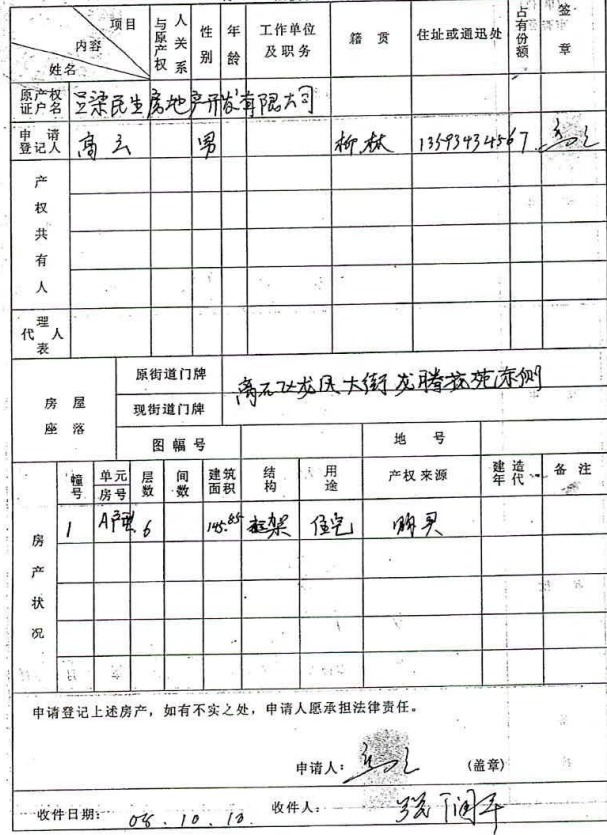 项目 内容 姓名 与原产权人关系 性别 年龄 工作单位及职务 籍贯 住址或通迅处 占有份额 签章
原产权证户名 吕梁民生房地产开发有限公司
申请登记人 高云 男 柳林 13593434567
产权共有人
代理人表
房屋座落 原街道门牌 离石区龙凤大街龙腾苑东侧
现街道门牌
图幅号 地号
房产状况 幢号 单元房号 层数 间数 建筑面积 结构 用途 产权来源 建造年代 备注
1 6 145.85 框架 住宅 购买
申请登记上述房产，如有不实之处，申请人愿承担法律责任。
申请人： (盖章)
收件日期： 08.10.10 收件人：